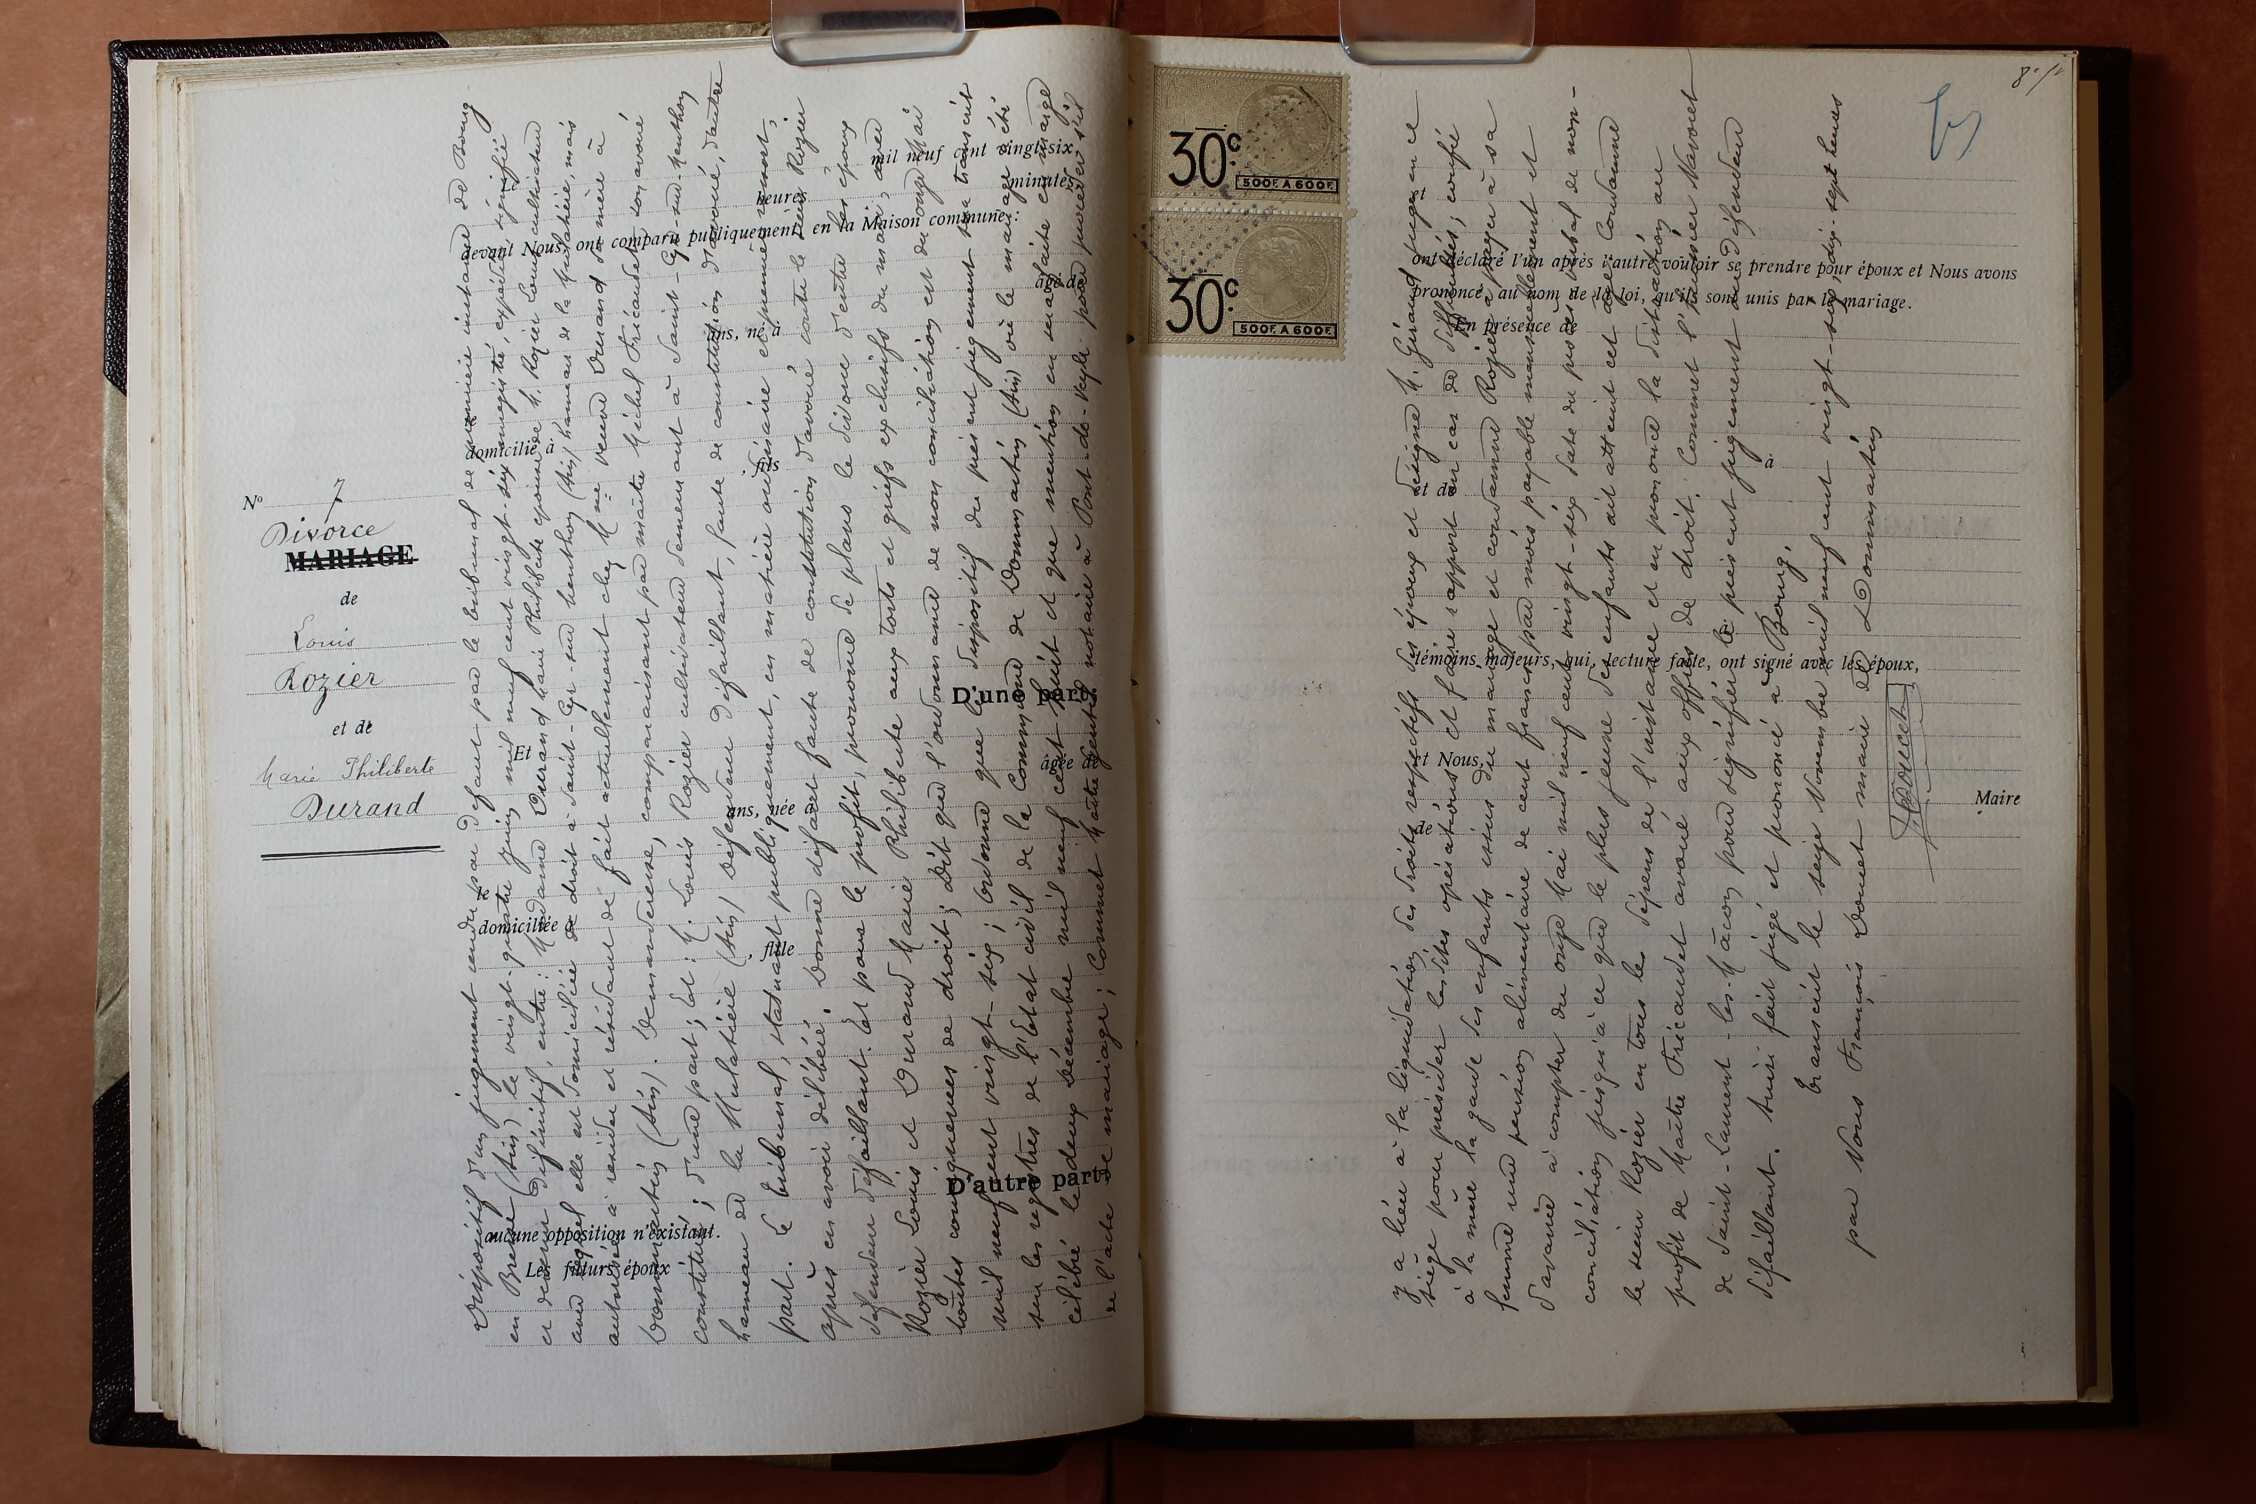 N° 7
Divorce
MARIAGE
de
Louis
Rozier
et de
Marie Philiberte
Durand
mil neuf cent vingt-six
heures
minutes
devant Nous, ont comparu publiquement, en la Maison commune :
âgé de
ans, né à
domicilié à
fils
D'une part.
Et
âgée de
ans, née à
le
domiciliée à
fille
D'autre part.
aucune opposition n'existant.
Les futurs époux
Dispositif d'un jugement rendu par défaut par le tribunal de première instance de Bourg
en Bresse (Ain) le vingt-quatre juin mil neuf cent vingt-six enregistré, expédié, signifié
et devenu définitif, entre : Madame Durand Marie Philiberte épouse de M. Rozier Louis cultivateur
avec lequel elle est domiciliée de droit à Saint-Cyr-sur Menthon (Ain) hameau de la Mulatière, mais
autorisée à résider et résidant de fait actuellement chez Mme veuve Durand sa mère à
Dommartin (Ain). Demanderesse, comparaissant par maître Michel Fricaudet son avoué
constitué ; d'une part ; Et : M. Louis Rozier cultivateur demeurant à Saint-Cyr-sur-Menthon
hameau de la Mulatière (Ain) Défendeur défaillant, faute de constitution d'avoué, d'autre
part. Le tribunal, statuant publiquement, en matière ordinaire et premier ressort,
après en avoir délibéré. Donne défaut faute de constitution d'avoué contre le sieur Rozier
défendeur défaillant. Et pour le profit, prononce de plano le divorce d'entre les époux
Rozier Louis et Durand Marie Philiberte aux torts et griefs exclusifs du mari, avec
toutes conséquences de droit ; Dit que l'ordonnance de non conciliation est du onze Mai
mil neuf cent vingt-six ; Ordonne que le dispositif du présent jugement sera transcrit
sur les registres de l'Etat civil de la Commune de Dommartin (Ain) où le mariage a été
célébré le deux Décembre mil neuf cent huit et que mention en sera faite en marge
de l'acte de mariage ; Commet Maître notaire à Pont-de-Veyle pour procéder s'il
8
30c
500F. A 600F.
30c
500F. A 600F.
et
ont déclaré l'un après l'autre vouloir se prendre pour époux et Nous avons
prononcé, au nom de la loi, qu'ils sont unis par le mariage.
En présence de
à
et de
témoins majeurs, qui, lecture faite, ont signé avec les époux,
et Nous,
Maire
de
y a lieu à la liquidation des droits respectifs des époux et désigne M. Giraud juge en ce
siège pour présider les dites opérations et faire rapport en cas de difficultés ; confie
à la mère la garde des enfants issus du mariage et condamne Rozier à payer à sa
femme une pension alimentaire de cent francs par mois payable mensuellement et
d'avance à compter du onze Mai mil neuf cent vingt-six date du procès verbal de non-
conciliation jusqu'à ce que le plus jeune des enfants ait atteint cet âge Condamne
le sieur Rozier en tous les dépens de l'instance et en prononce la distraction au
profit de Maître Fricaudet avoué aux offres de droit. Commet l'huissier Navoret
de Saint-Laurent-les-Mâcon pour signifier le présent jugement au défendeur
défaillant. Ainsi fait jugé et prononcé à Bourg.
Transcrit le seize Novembre mil neuf cent vingt-six dix-sept heures
par Nous François Doucet maire de Dommartin
Doucet